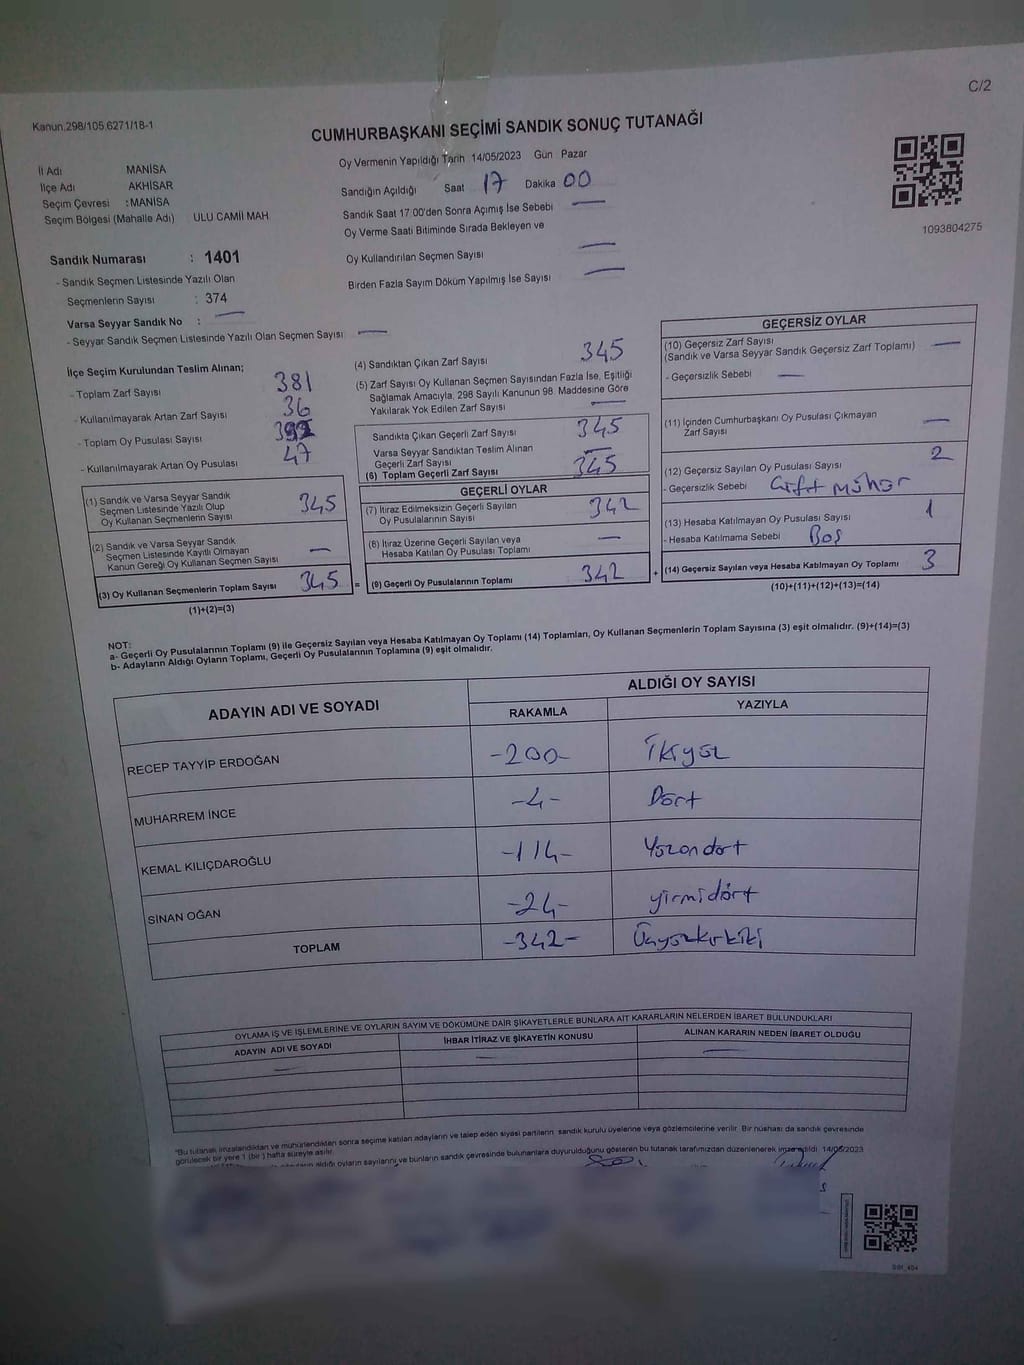 C/2
Kanun.298/105,6271/18-1
CUMHURBAŞKANI SEÇİMİ SANDIK SONUÇ TUTANAĞI
İl Adı MANİSA
İlçe Adı AKHİSAR
Seçim Çevresi :MANİSA
Seçim Bölgesi (Mahalle Adı) ULU CAMİİ MAH
Sandık Numarası : 1401
- Sandık Seçmen Listesinde Yazılı Olan
Seçmenlerin Sayısı : 374
Varsa Seyyar Sandık No : —
- Seyyar Sandık Seçmen Listesinde Yazılı Olan Seçmen Sayısı —
Oy Vermenin Yapıldığı Tarih 14/05/2023 Gün Pazar
Sandığın Açıldığı Saat 17 Dakika 00
Sandık Saat 17:00'den Sonra Açımış İse Sebebi —
Oy Verme Saati Bitiminde Sırada Bekleyen ve
Oy Kullandırılan Seçmen Sayısı —
Birden Fazla Sayım Döküm Yapılmış İse Sayısı —
1093804275
İlçe Seçim Kurulundan Teslim Alınan;
- Toplam Zarf Sayısı 381
- Kullanılmayarak Artan Zarf Sayısı 36
- Toplam Oy Pusulası Sayısı
- Kullanılmayarak Artan Oy Pusulası 47
(1) Sandık ve Varsa Seyyar Sandık
Seçmen Listesinde Yazılı Olup
Oy Kullanan Seçmenlerin Sayısı 345
(2) Sandık ve Varsa Seyyar Sandık
Seçmen Listesinde Kayıtlı Olmayan
Kanun Gereği Oy Kullanan Seçmen Sayısı —
(3) Oy Kullanan Seçmenlerin Toplam Sayısı 345 =
(1)+(2)=(3)
(4) Sandıktan Çıkan Zarf Sayısı 345
(5) Zarf Sayısı Oy Kullanan Seçmen Sayısından Fazla İse, Eşitliği
Sağlamak Amacıyla, 298 Sayılı Kanunun 98. Maddesine Göre
Yakılarak Yok Edilen Zarf Sayısı —
Sandıkta Çıkan Geçerli Zarf Sayısı 345
Varsa Seyyar Sandıktan Teslim Alınan
Geçerli Zarf Sayısı —
(6) Toplam Geçerli Zarf Sayısı 345
GEÇERLİ OYLAR
(7) İtiraz Edilmeksizin Geçerli Sayılan
Oy Pusulalarının Sayısı 342
(8) İtiraz Üzerine Geçerli Sayılan veya
Hesaba Katılan Oy Pusulası Toplamı —
(9) Geçerli Oy Pusulalarının Toplamı 342 +
GEÇERSİZ OYLAR
(10) Geçersiz Zarf Sayısı
(Sandık ve Varsa Seyyar Sandık Geçersiz Zarf Toplamı) —
- Geçersizlik Sebebi —
(11) İçinden Cumhurbaşkanı Oy Pusulası Çıkmayan
Zarf Sayısı —
(12) Geçersiz Sayılan Oy Pusulası Sayısı 2
- Geçersizlik Sebebi Çift mühür
(13) Hesaba Katılmayan Oy Pusulası Sayısı 1
- Hesaba Katılmama Sebebi Boş
(14) Geçersiz Sayılan veya Hesaba Katılmayan Oy Toplamı 3
(10)+(11)+(12)+(13)=(14)
NOT:
a- Geçerli Oy Pusulalarının Toplamı (9) ile Geçersiz Sayılan veya Hesaba Katılmayan Oy Toplamı (14) Toplamları, Oy Kullanan Seçmenlerin Toplam Sayısına (3) eşit olmalıdır. (9)+(14)=(3)
b- Adayların Aldığı Oyların Toplamı, Geçerli Oy Pusulalarının Toplamına (9) eşit olmalıdır.
ADAYIN ADI VE SOYADI ALDIĞI OY SAYISI
RAKAMLA YAZIYLA
RECEP TAYYİP ERDOĞAN -200- İkiyüz
MUHARREM İNCE -4- Dört
KEMAL KILIÇDAROĞLU -114- Yüzondört
SİNAN OĞAN -24- yirmidört
TOPLAM -342- Üçyüzkırkiki
OYLAMA İŞ VE İŞLEMLERİNE VE OYLARIN SAYIM VE DÖKÜMÜNE DAİR ŞİKAYETLERLE BUNLARA AİT KARARLARIN NELERDEN İBARET BULUNDUKLARI
ADAYIN ADI VE SOYADI İHBAR İTİRAZ VE ŞİKAYETİN KONUSU ALINAN KARARIN NEDEN İBARET OLDUĞU
— — —
"Bu tutanak imzalandıktan ve mühürlendikten sonra seçime katılan adayların ve talep eden siyasi partilerin sandık kurulu üyelerine veya gözlemcilerine verilir. Bir nüshası da sandık çevresinde
görülecek bir yere 1 (bir) hafta süreyle asılır.
aldığı oyların sayılarını ve bunların sandık çevresinde bulunanlara duyurulduğunu gösteren bu tutanak tarafımızdan düzenlenerek imza edildi. 14/05/2023